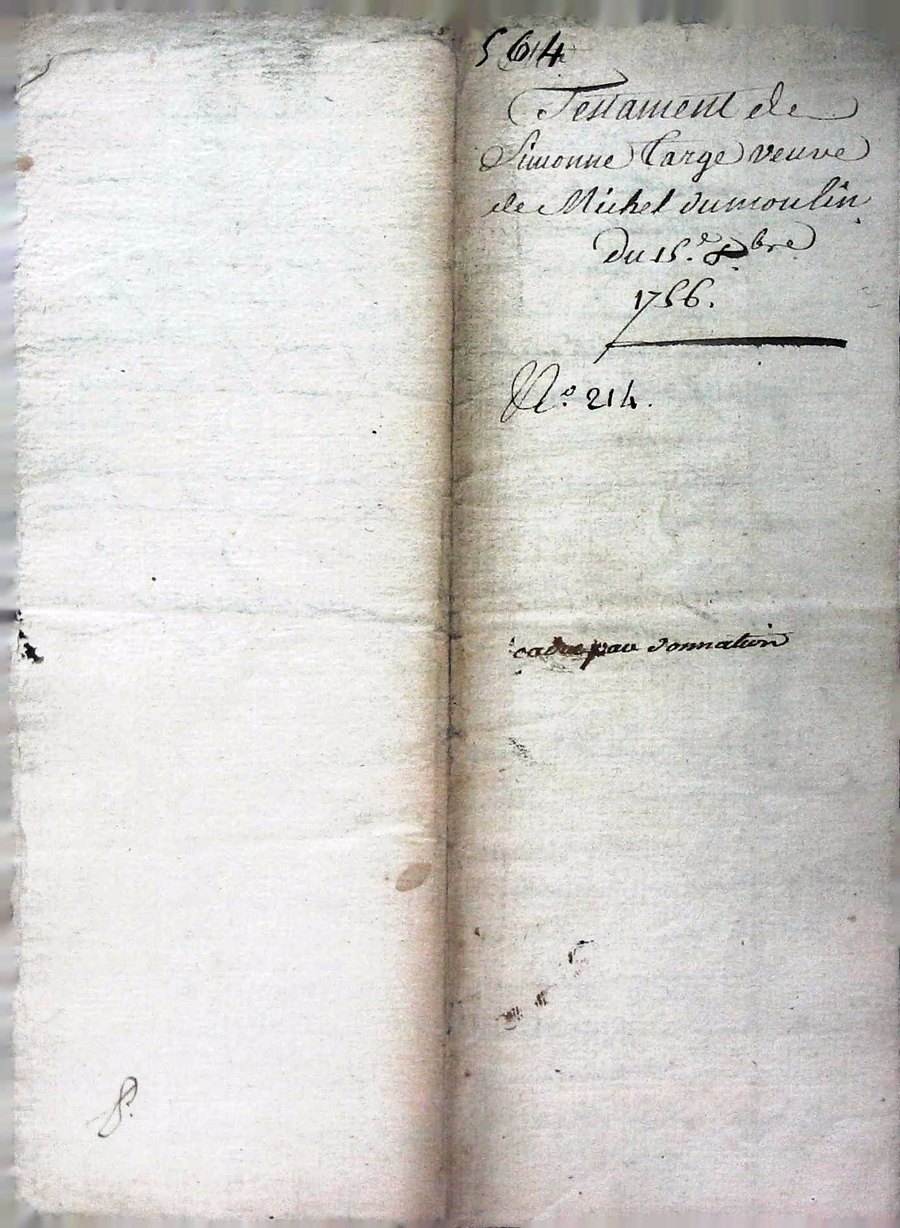 5614
Testament de
Simonne Large veuve
de Michel Dumoulin
Du 15.e 8bre
1756.
N.o 214.
par donnation
8.